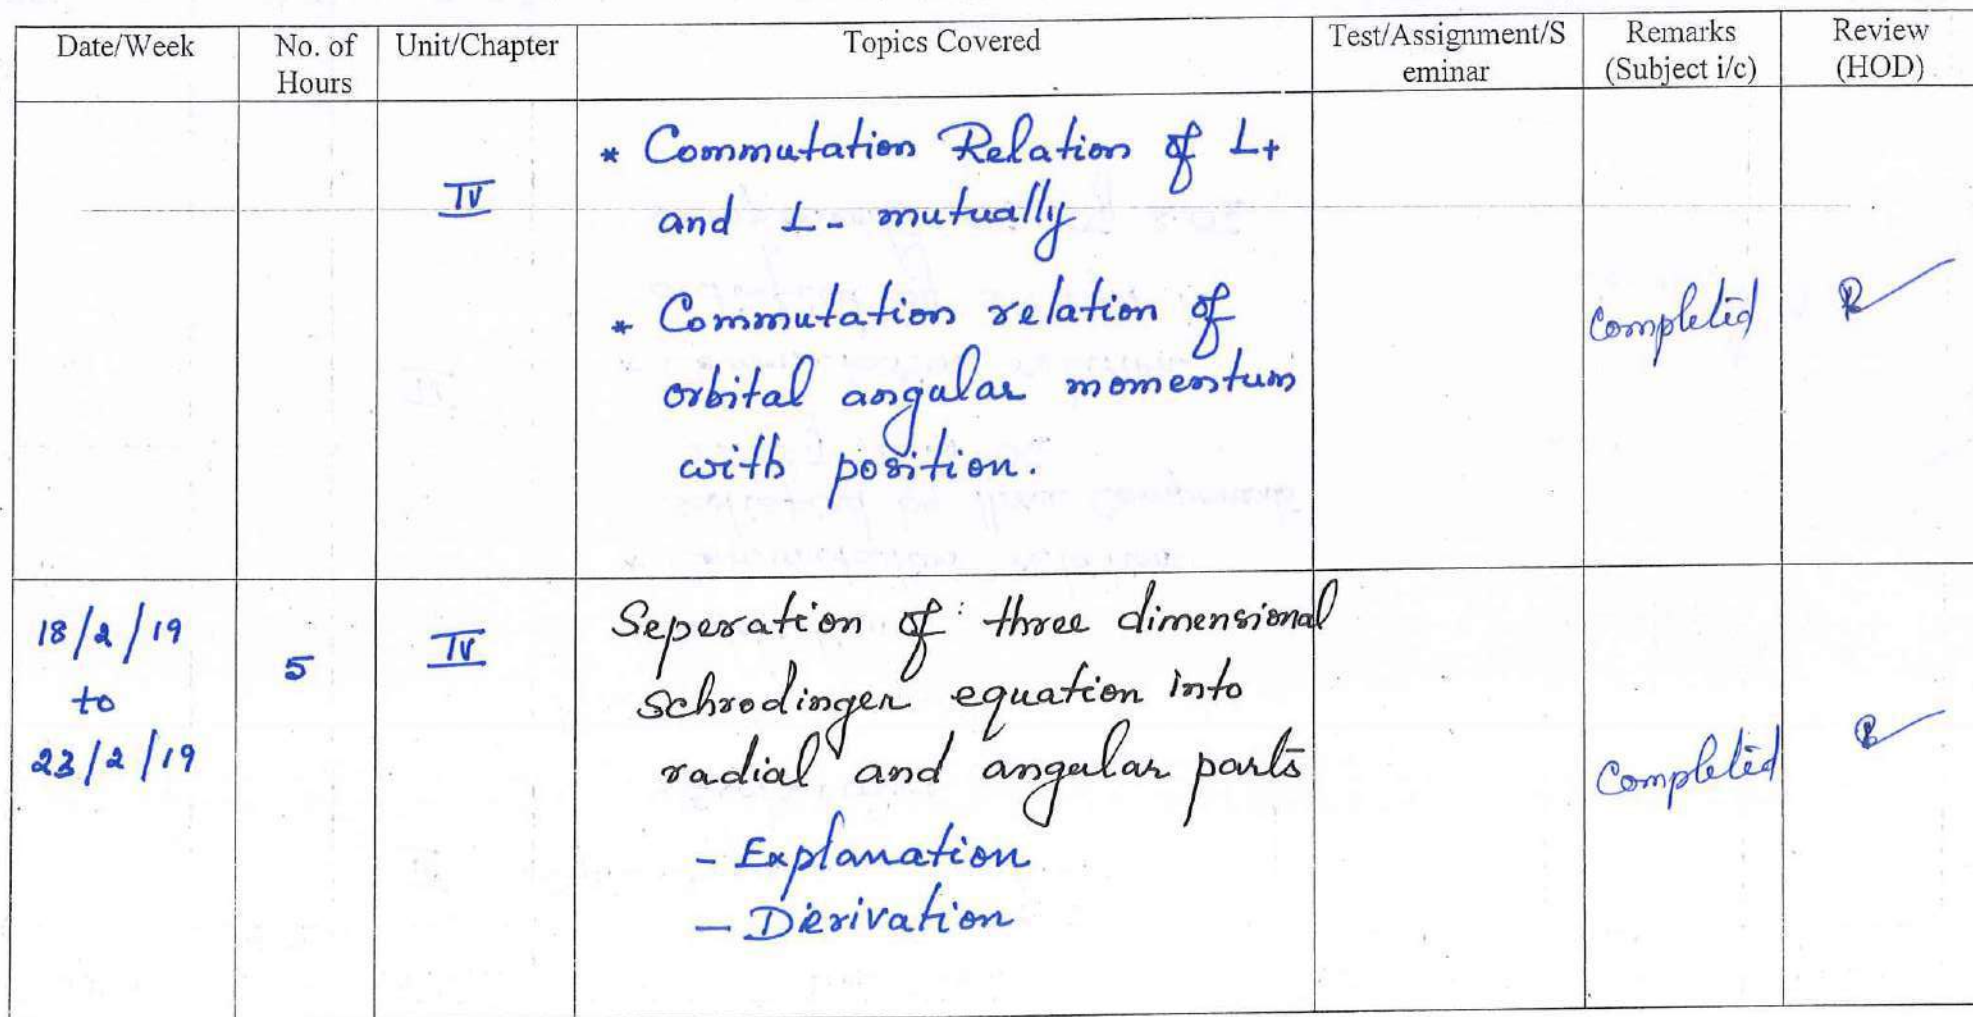 Date/Week No. of Hours Unit/Chapter Topics Covered Test/Assignment/S eminar Remarks (Subject i/c) Review (HOD)
IV
* Commutation Relation of L+
and L- mutually
* Commutation relation of
orbital angular momentum
with position.
Completed
18/2/19
to
23/2/19
5
IV
Seperation of three dimensional
schrodinger equation into
radial and angular parts
- Explanation
- Derivation
Completed